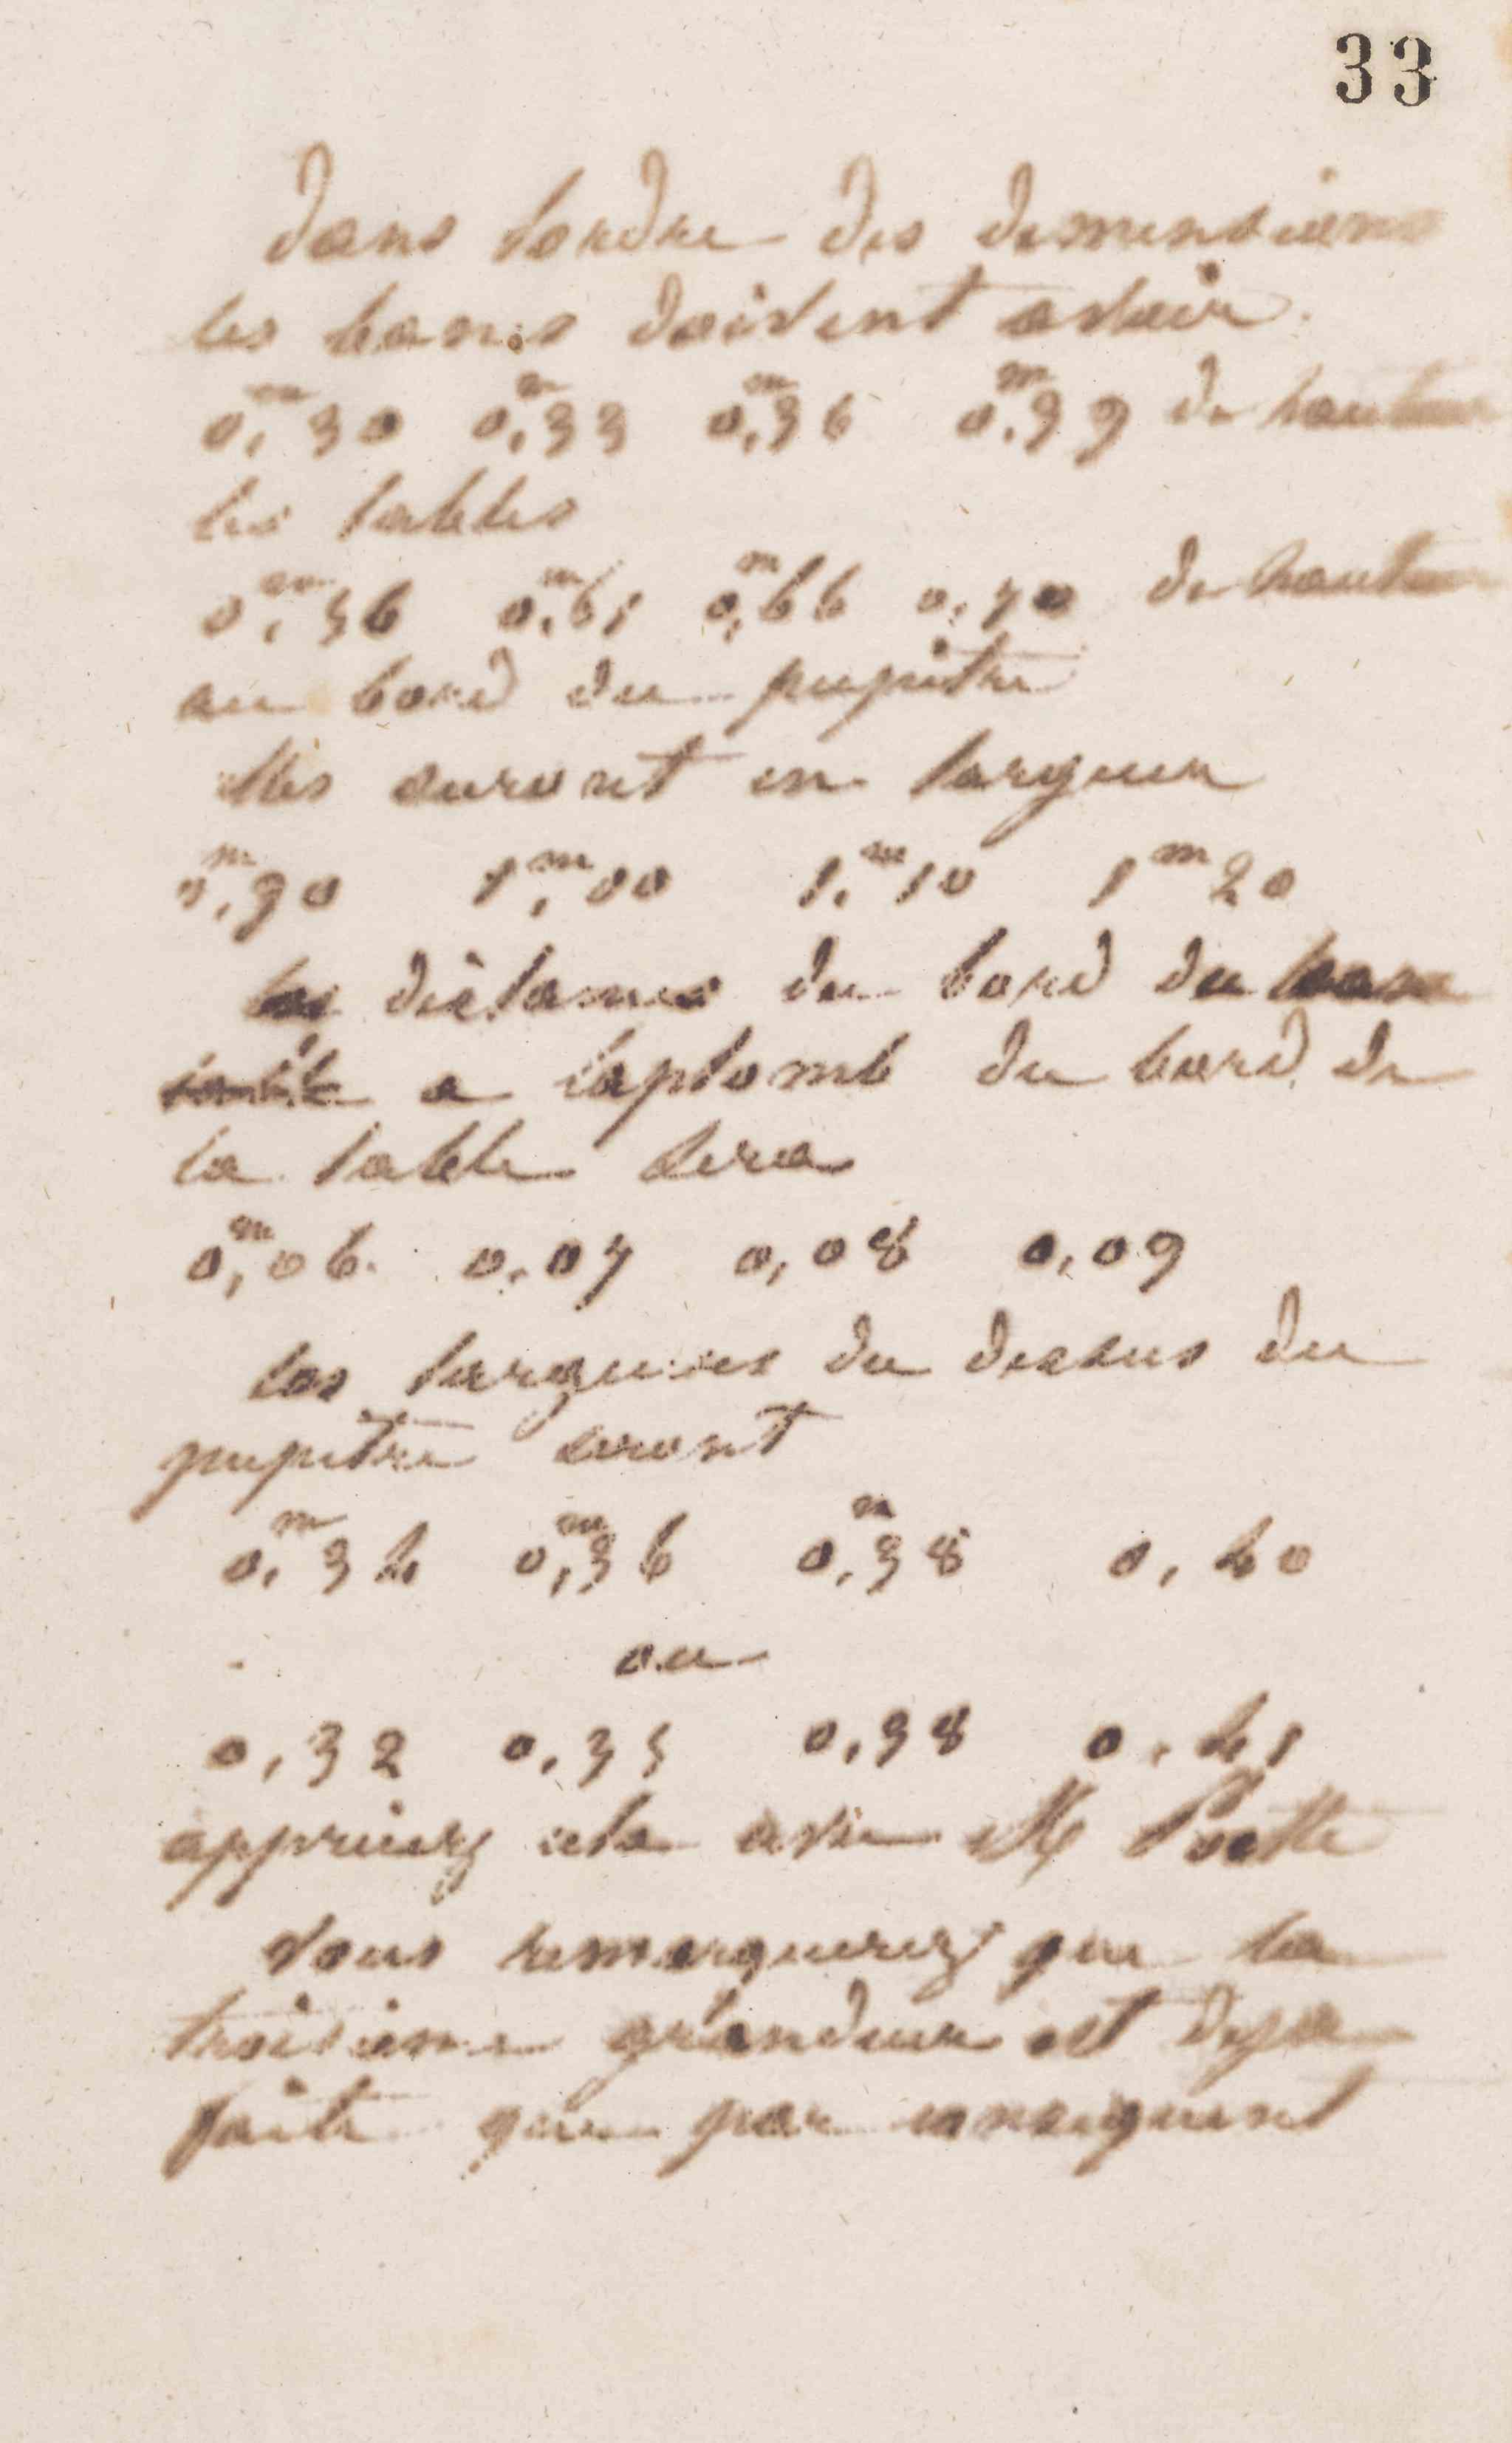 33
dans lordre des dimensions
les bancs doivent avoir
0,m30 0,m33 0,m36 0,m39 de hauteur
les tables
0,m56 0,m61 0,m66 0,70 de hauteur
au bord du pupitre
elles auront en largeur
0,m90 1,m00 1,m10 1m20
les distances du bord du banc
a laplomb du bord de
la table sera
0,m06 0,07 0,08 0,09
les largeurs du dessus du
pupitre seront
0,m34 0,m36 0,m38 0,40
ou
0,32 0,35 0,38 0,41
appreciez cela avec Mr
Vous remarquerez que la
troisieme grandeur est deja
faite que par consequent